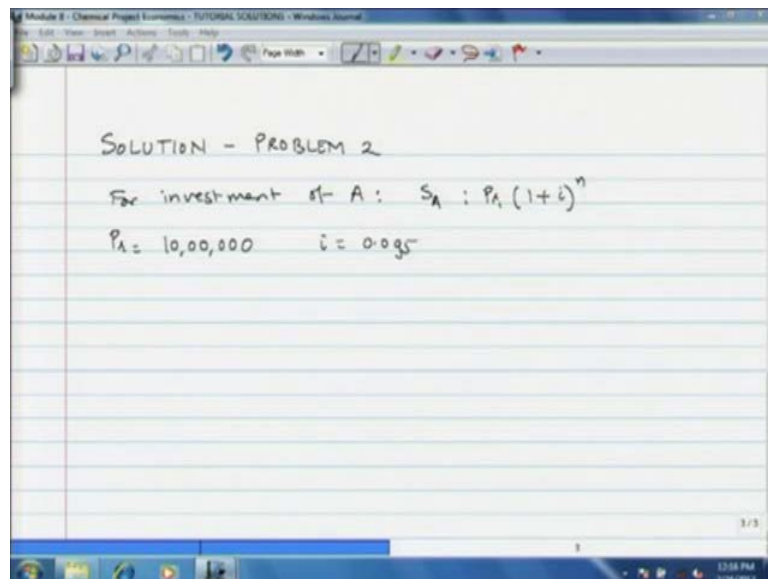 Module 8 - Chemical Project Economics - TUTORIAL SOLUTIONS - Windows Journal
File Edit View Insert Actions Tools Help
Page Width
SOLUTION - PROBLEM 2
For investment of A : S_A : P_A (1+i)^n
P_A = 10,00,000 i = 0.095
3/3
3
12:58 PM